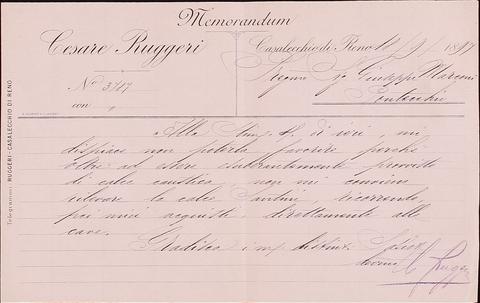 Memorandum
Cesare Ruggeri
Casalecchio di Reno 11/9/ 1897
No 3717
con
Sigr Giuseppe Marconi
Pontecchio
Telegrammi: RUGGERI-CASALECCHIO DI RENO
Alla di ieri, mi
dispiace non poterla favorire perchè
oltre ad essere provvisto
di calce caustica, non mi conviene
ritirare la calce ricorrendo,
pei miei acquisti, direttamente alle
cave.
Gradisca i m/ distinti
C Ruggeri